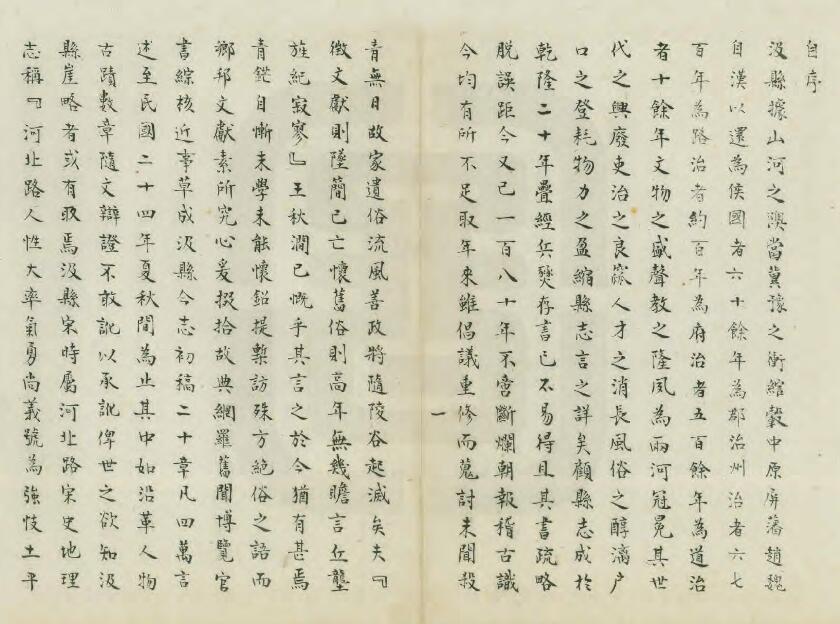 自序
汲縣據山河之隩當冀豫之衝綰轂中原屏藩趙魏
自漢以還為侯國者六十餘年為郡治州治者六七
百年為路治者約百年為府治者五百餘年為道治
者十餘年文物之盛聲教之隆夙為兩河冠冕其世
代之興廢吏治之良窳人才之消長風俗之醇漓户
口之登耗物力之盈縮縣志言之詳矣顧縣志成於
乾隆二十年疊經兵燹存書已不易得且其書疏略
脱誤距今又已一百八十年不啻斷爛朝報稽古識
今均有所不足取年來雖倡議重修而蒐討未聞殺
一
青無日故家遺俗流風善政將隨陵谷起滅矣夫『
徵文獻則墜簡已亡懷舊俗則高年無幾瞻言丘壟
旌紀寂寥』王秋澗已慨乎其言之於今猶有甚焉
青鋩自慚末學未能懷鉛提槧訪殊方絶俗之語而
鄉邦文獻素所究心爰掇拾故典網羅舊聞博覽官
書綜核近事草成汲縣今志初稿二十章凡四萬言
述至民國二十四年夏秋間為止其中如沿革人物
古蹟數章隨文辯證不敢訛以承訛俾世之欲知汲
縣崖略者或有取焉汲縣宋時屬河北路宋史地理
志稱『河北路人性大率氣勇尚義號為強忮土平